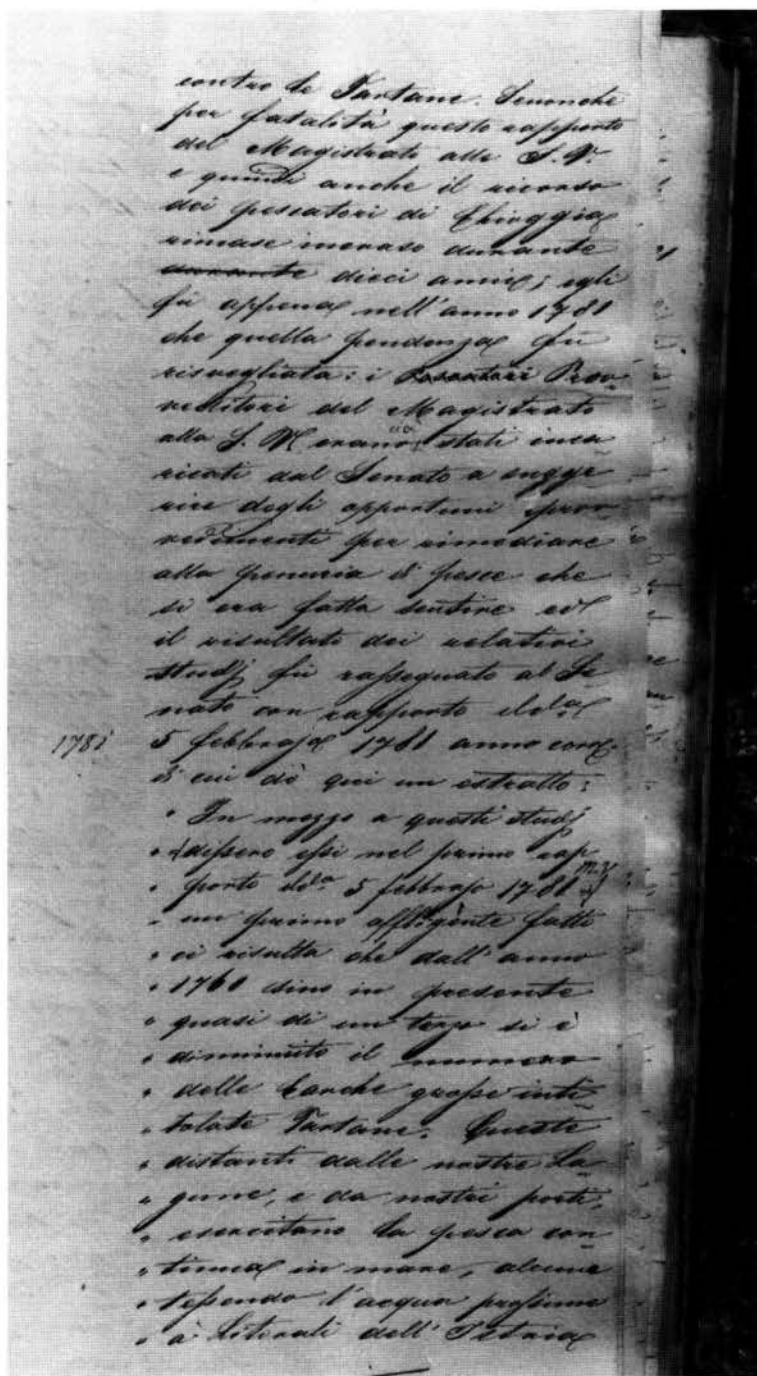 contro le Tartane. Senonche
per fatalità questo rapporto
del Magistrato alla S. V.
e quindi anche il ricorso
dei pescatori di Chioggia
rimase inevaso durante
durante dieci anni; egli
fù appena nell'anno 1781
che quella pendenza fù
risvegliata: i Prov-
veditori del Magistrato
alla S. erano stati inca
ricati dal Senato a sugge
rire degli opportuni prov
vedimenti per rimediare
alla penuria di pesce che
si era fatta sentire ed
il risultato dei relativi
studj fù rassegnato al Se
nato con rapporto dd.a
1781 5 febbrajo 1781 anno corr.
di cui dò qui un estratto:
" In mezzo a questi studj
" (dissero essi nel primo rap
" porto dd.a 5 febbrajo 1781 m.v.)
" un primo affligente fatto
" ci risulta che dall'anno
" 1760 sino in presente
" quasi di un terzo si è
" diminuito il numero
" delle barche grosse inti
" tolate Tartane. Queste
" distanti dalle nostre La-
" gune, e da nostri porti,
" esercitano la pesca con
" tinua in mare, alcune
" tessendo l'acqua prossima
" a' litorali dell'Istria